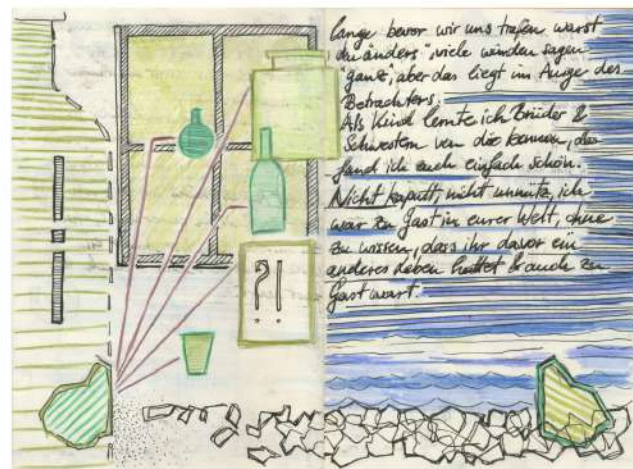 lange bevor wir uns trafen warst
du anders "viele würden sagen
"ganz, aber das liegt im Auge des
Betrachters.
Als Kind lernte ich Brüder &
Schwestern von dir kennen, da
fand ich euch einfach schön.
Nicht kaputt, nicht unnütz, ich
war zu Gast in eurer Welt, ohne
zu wissen, dass ihr davor ein
anderes Leben hattet & auch zu
Gast wart.
?!